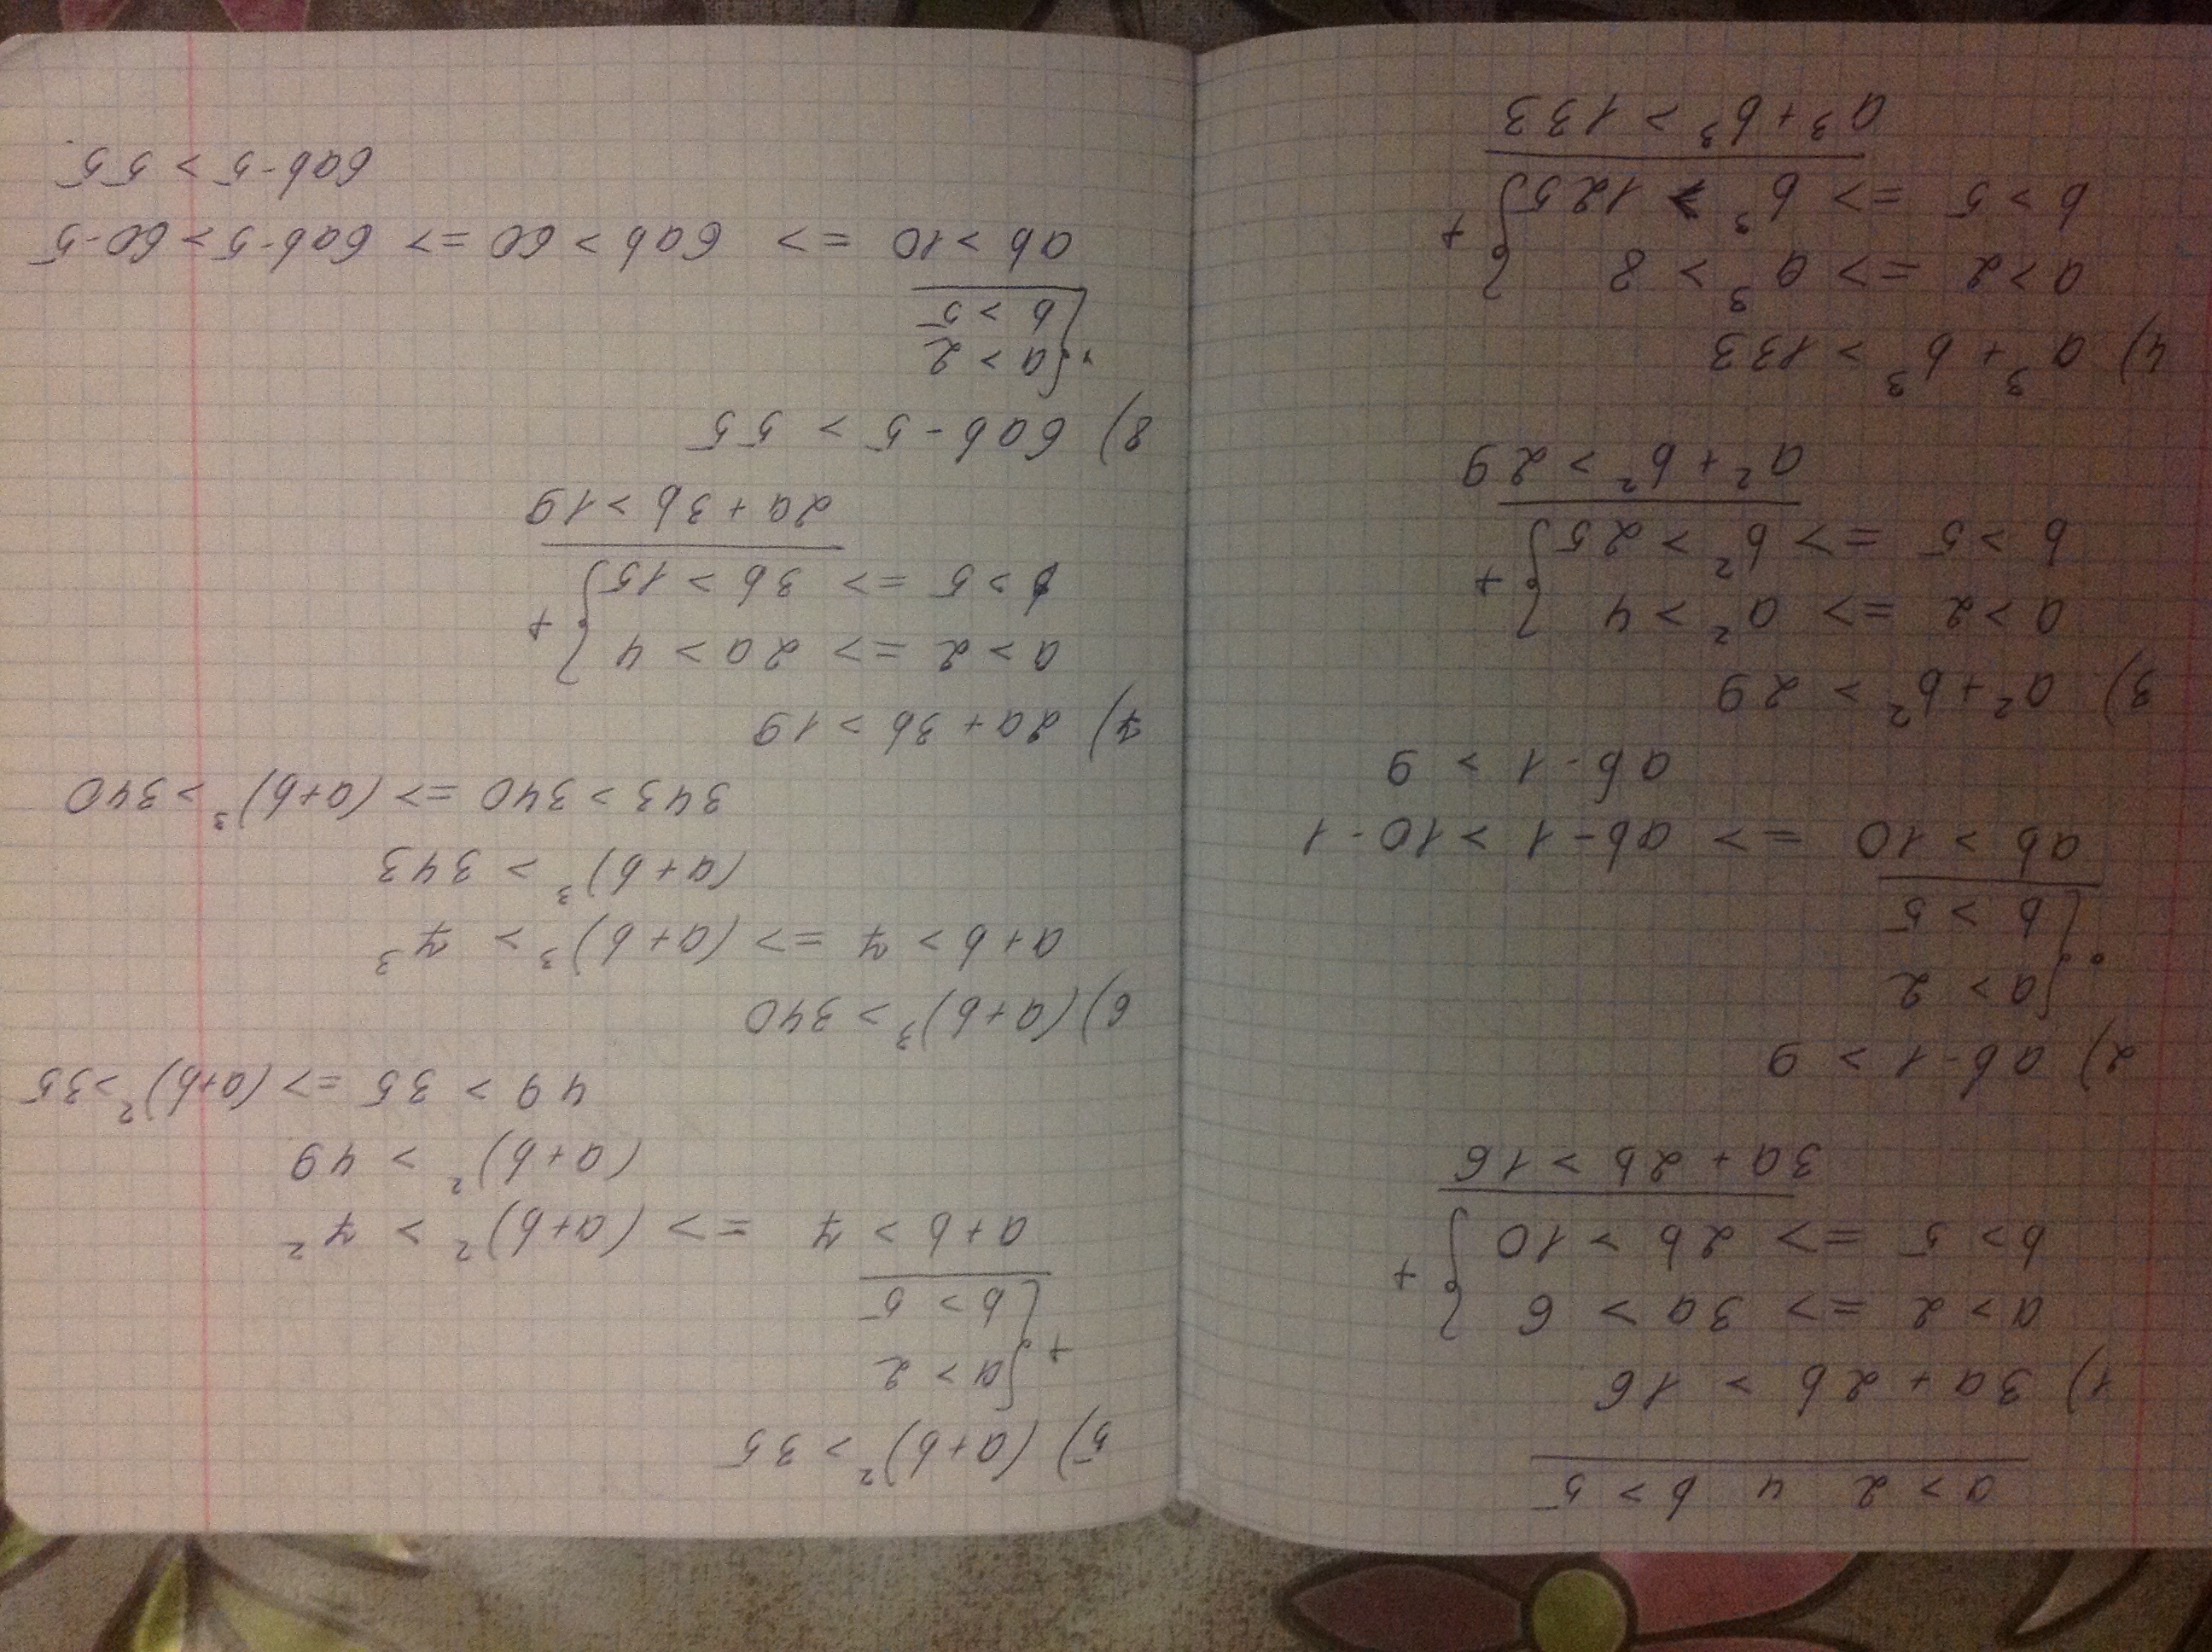 a > 2 и b > 5
1) 3a + 2b > 16
a > 2 => 3a > 6 } +
b > 5 => 2b > 10
3a + 2b > 16
2) ab - 1 > 9
· { a > 2
b > 5
ab > 10 => ab - 1 > 10 - 1
ab - 1 > 9
3) a² + b² > 29
a > 2 => a² > 4 } +
b > 5 => b² > 25
a² + b² > 29
4) a³ + b³ > 133
a > 2 => a³ > 8 } +
b > 5 => b³ > 125
a³ + b³ > 133
5) (a+b)² > 35
+ { a > 2
b > 5
a + b > 7 => (a+b)² > 7²
(a+b)² > 49
49 > 35 => (a+b)² > 35
6) (a+b)³ > 340
a + b > 7 => (a+b)³ > 7³
(a+b)³ > 343
343 > 340 => (a+b)³ > 340
7) 2a + 3b > 19
a > 2 => 2a > 4 } +
b > 5 => 3b > 15
2a + 3b > 19
8) 6ab - 5 > 55
· { a > 2
b > 5
ab > 10 => 6ab > 60 => 6ab - 5 > 60 - 5
6ab - 5 > 55.